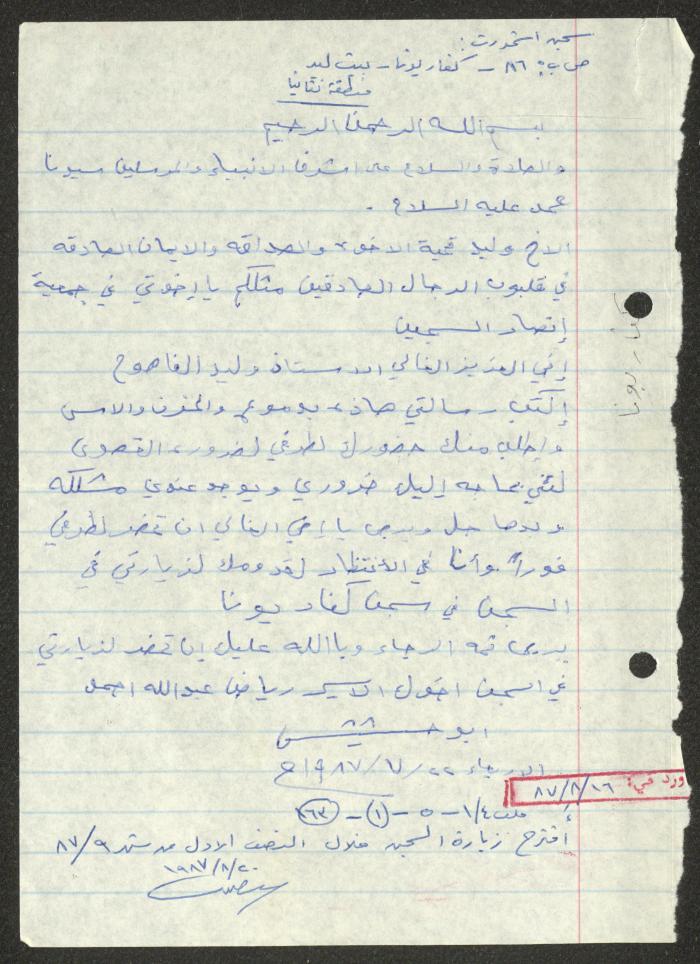 سجن اشمورت:
ص.ب: ٨٦ - كفار يونا - بيت ليد
منطقة نتانيا
بسم الله الرحمن الرحيم
والصلاة والسلام على اشرف الانبياء والمرسلين سيدنا
محمد عليه السلام .
الاخ وليد تحية الاخوه والصداقه والايمان الصادقه
في قلوب الرجال الصادقين مثلكم يا إخوتي في جمعية
إنصار السجين
إخي العزيز الغالي الاستاذ وليد الفاهوم
إكتب رسالتي هاذه بدموع والحزن والاسى
واطلب منك حضورك لطرفي لضروره القصوى
لنني بحاجه إليك ضروري ويوجد عندي مشكله
وبدها حل ويرجى يا إخي الغالي ان تحضر لطرفي
فوراً وأنا في الأنتظار لقدومك لزيارتي في
السجن في سجن كفار يونا
يرجى ثمه الرجاء وبا الله عليك ان تحضر لزيارتي
في السجن اخوك الاسير رياض عبدالله احمد
ابو حشيش
الاربعاء ٢٢/٧/١٩٨٧م
ورد في: ٨٧/٨/١٦
ملف ١/٤ - ٥ - (١) - (٨٦٣)
أقترح زيارة السجن خلال النصف الاول من شهر ٨٧/٩
١٩٨٧/٨/٢٠
كفار يونا